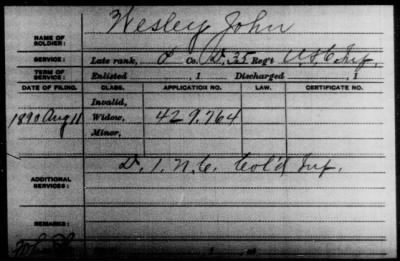 NAME OF SOLDIER: Wesley John
SERVICE: Late rank, Co. D, 35 Reg't U.S.C Inf.
TERM OF SERVICE: Enlisted , 1 Discharged , 1
DATE OF FILING. CLASS. APPLICATION NO. LAW. CERTIFICATE NO.
Invalid,
1890 Aug 11 Widow, 429.764
Minor,
ADDITIONAL SERVICES: D. 1. N.C. Col'd Inf.
REMARKS: